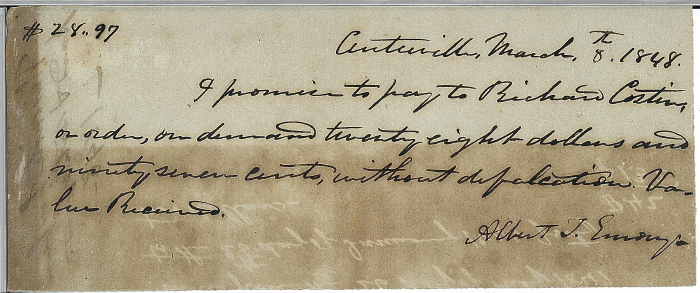 $ 28..97
Centreville, March, 8.th 1848.
I promise to pay to Richard Costin,
or order, on demand twenty eight dollars and
ninety seven cents, without defalcation. Va-
lue Received.
Albert T. Emory